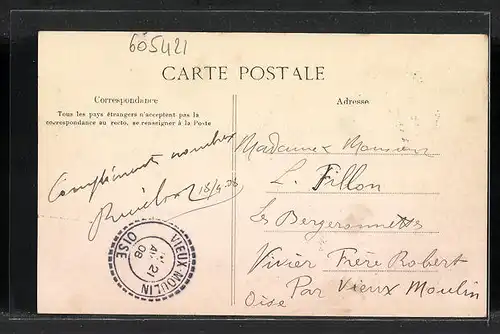 605421
CARTE POSTALE
Correspondance
Tous les pays étrangers n'acceptent pas la
correspondance au recto, se renseigner à la Poste
Adresse
Madame & Monsieur
L. Fillon
Les Bergeronnettes
Vivier Frère Robert
Par Vieux Moulin
Oise
VIEUX-MOULIN
21
08
OISE